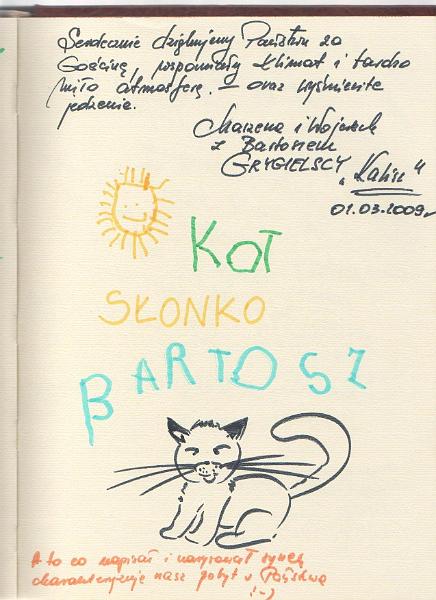 Serdecznie dziękujemy Państwu za
Gościnę, wspaniały klimat i bardzo
miłą atmosferę, – oraz wyśmienite
jedzenie.
Marzena i Wojciech
z Bartoszem
GRYGIELSCY
"Kalisz"
01.03.2009r
KOT
SŁONKO
BARTOSZ
A to co napisał i narysował synek
charakteryzuje nasz pobyt u Państwa
!-)